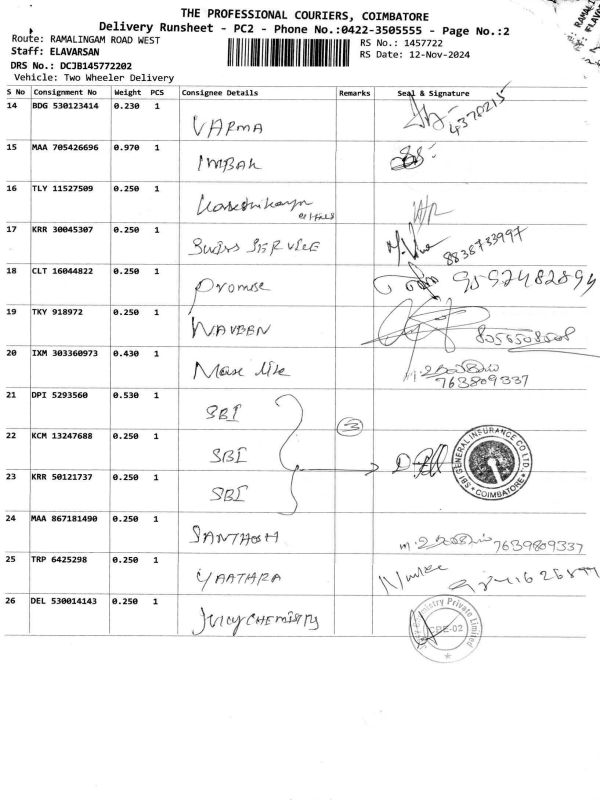 THE PROFESSIONAL COURIERS, COIMBATORE
Delivery Runsheet - PC2 - Phone No.:0422-3505555 - Page No.:2
Route: RAMALINGAM ROAD WEST
RS No.: 1457722
Staff: ELAVARSAN
RS Date: 12-Nov-2024
DRS No.: DCJB145772202
Vehicle: Two Wheeler Delivery
S No Consignment No Weight PCS Consignee Details Remarks Seal & Signature
14 BDG 530123414 0.230 1 VARMA 4378215
15 MAA 705426696 0.970 1
16 TLY 11527509 0.250 1
17 KRR 30045307 0.250 1 SERVICE 8838733997
18 CLT 16044822 0.250 1 Promise
19 TKY 918972 0.250 1 NAVEEN
20 IXM 303360973 0.430 1 763809337
21 DPI 5293560 0.530 1 SBI
3
22 KCM 13247688 0.250 1 SBI
SBI GENERAL INSURANCE CO LTD. COIMBATORE
23 KRR 50121737 0.250 1 SBI
24 MAA 867181490 0.250 1 SANTHOSH 7639809337
25 TRP 6425298 0.250 1 YAATHRA
26 DEL 530014143 0.250 1 JUICY CHEMISTRY
Private Limited
CBE-02